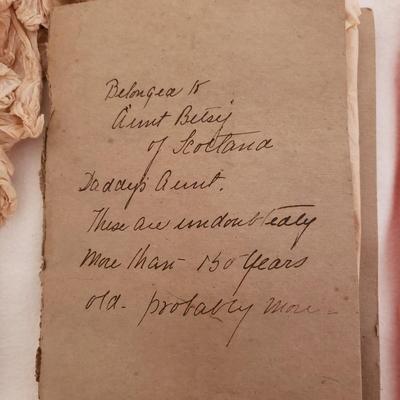 Belonged to
Aunt Betsy
of Scotland
Daddy's Aunt.
These are undoubtedly
more than 150 years
old - probably more -